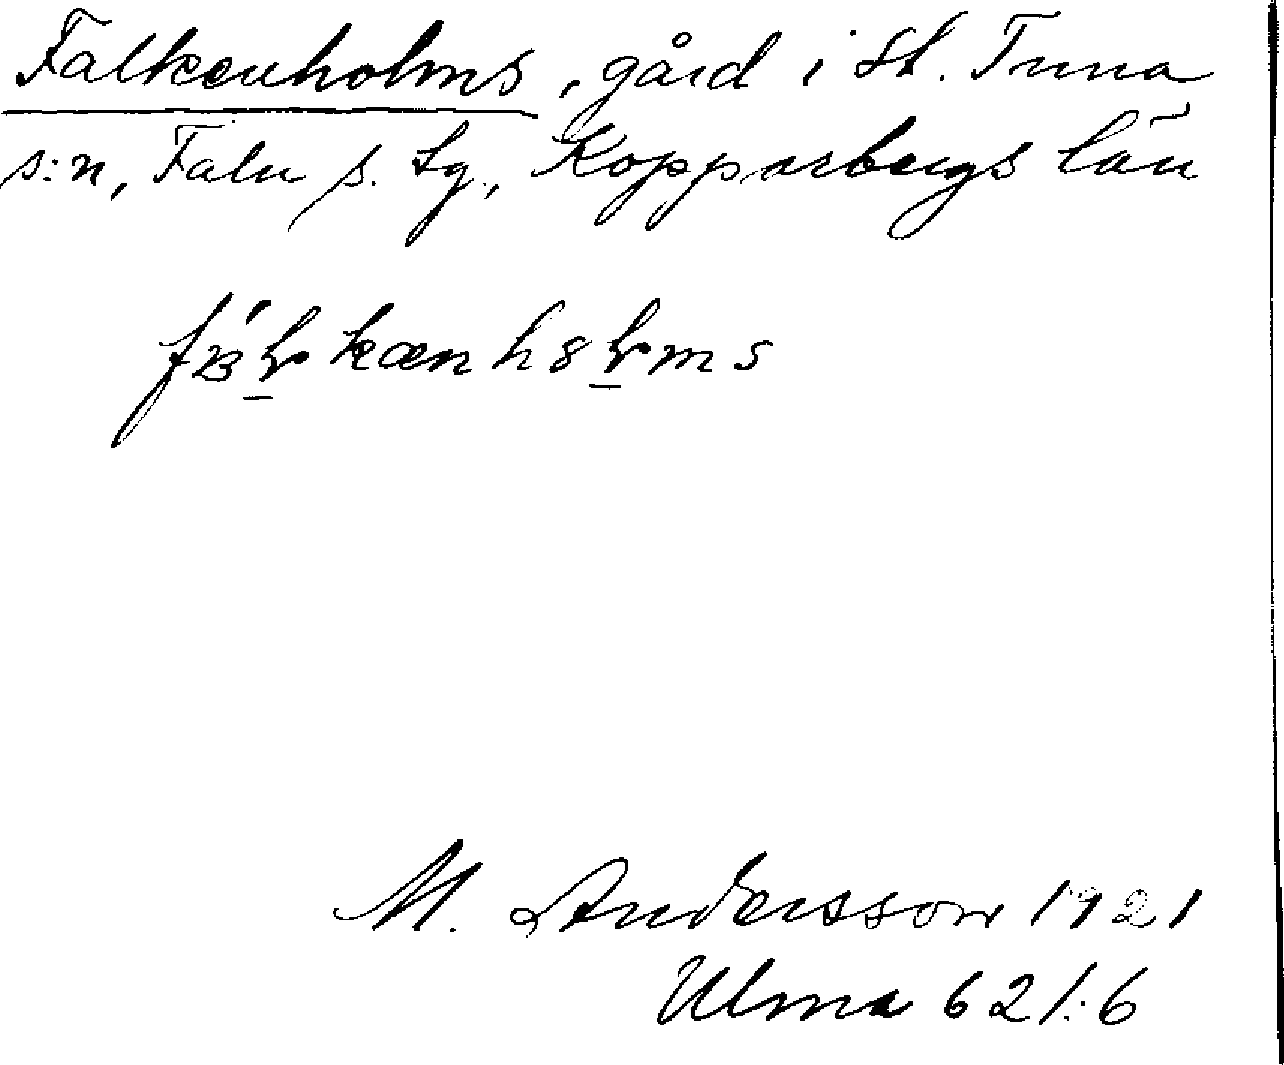 Falkenholms, gård i St. Tuna
s:n, Falu s. tg., Kopparbergs län
M. Andersson 1921
Ulma 621:6